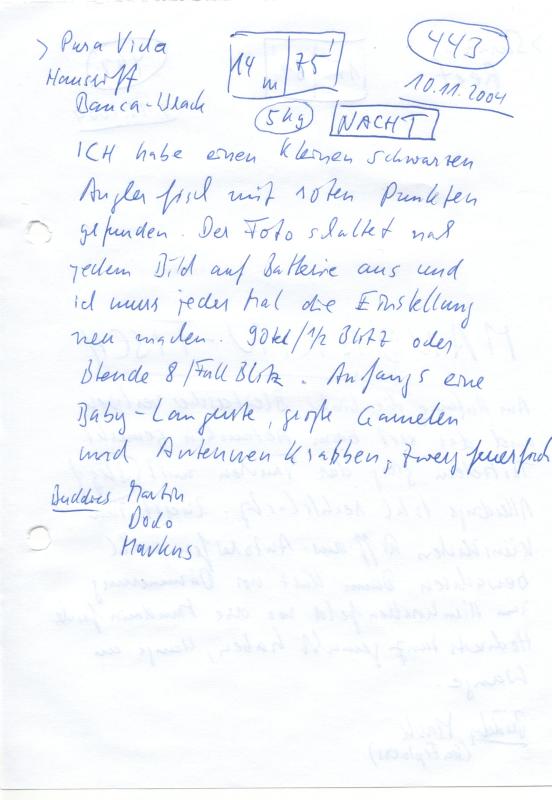 > Pura Vida
Hausriff
Banca-Wrack
14 m | 75'
443
10.11.2004
5kg
NACHT
ICH habe einen kleinen schwarzen
Anglerfisch mit roten Punkten
gefunden. Der Foto schaltet nach
jedem Bild auf Batterie aus und
ich muss jedes Mal die Einstellung
neu machen. 90tel/1/2 Blitz oder
Blende 8/Full Blitz. Anfangs eine
Baby-Languste, große Garnelen
und Antennen Krabben, Zwergfeuerfisch
Buddies Martin
Dodo
Markus